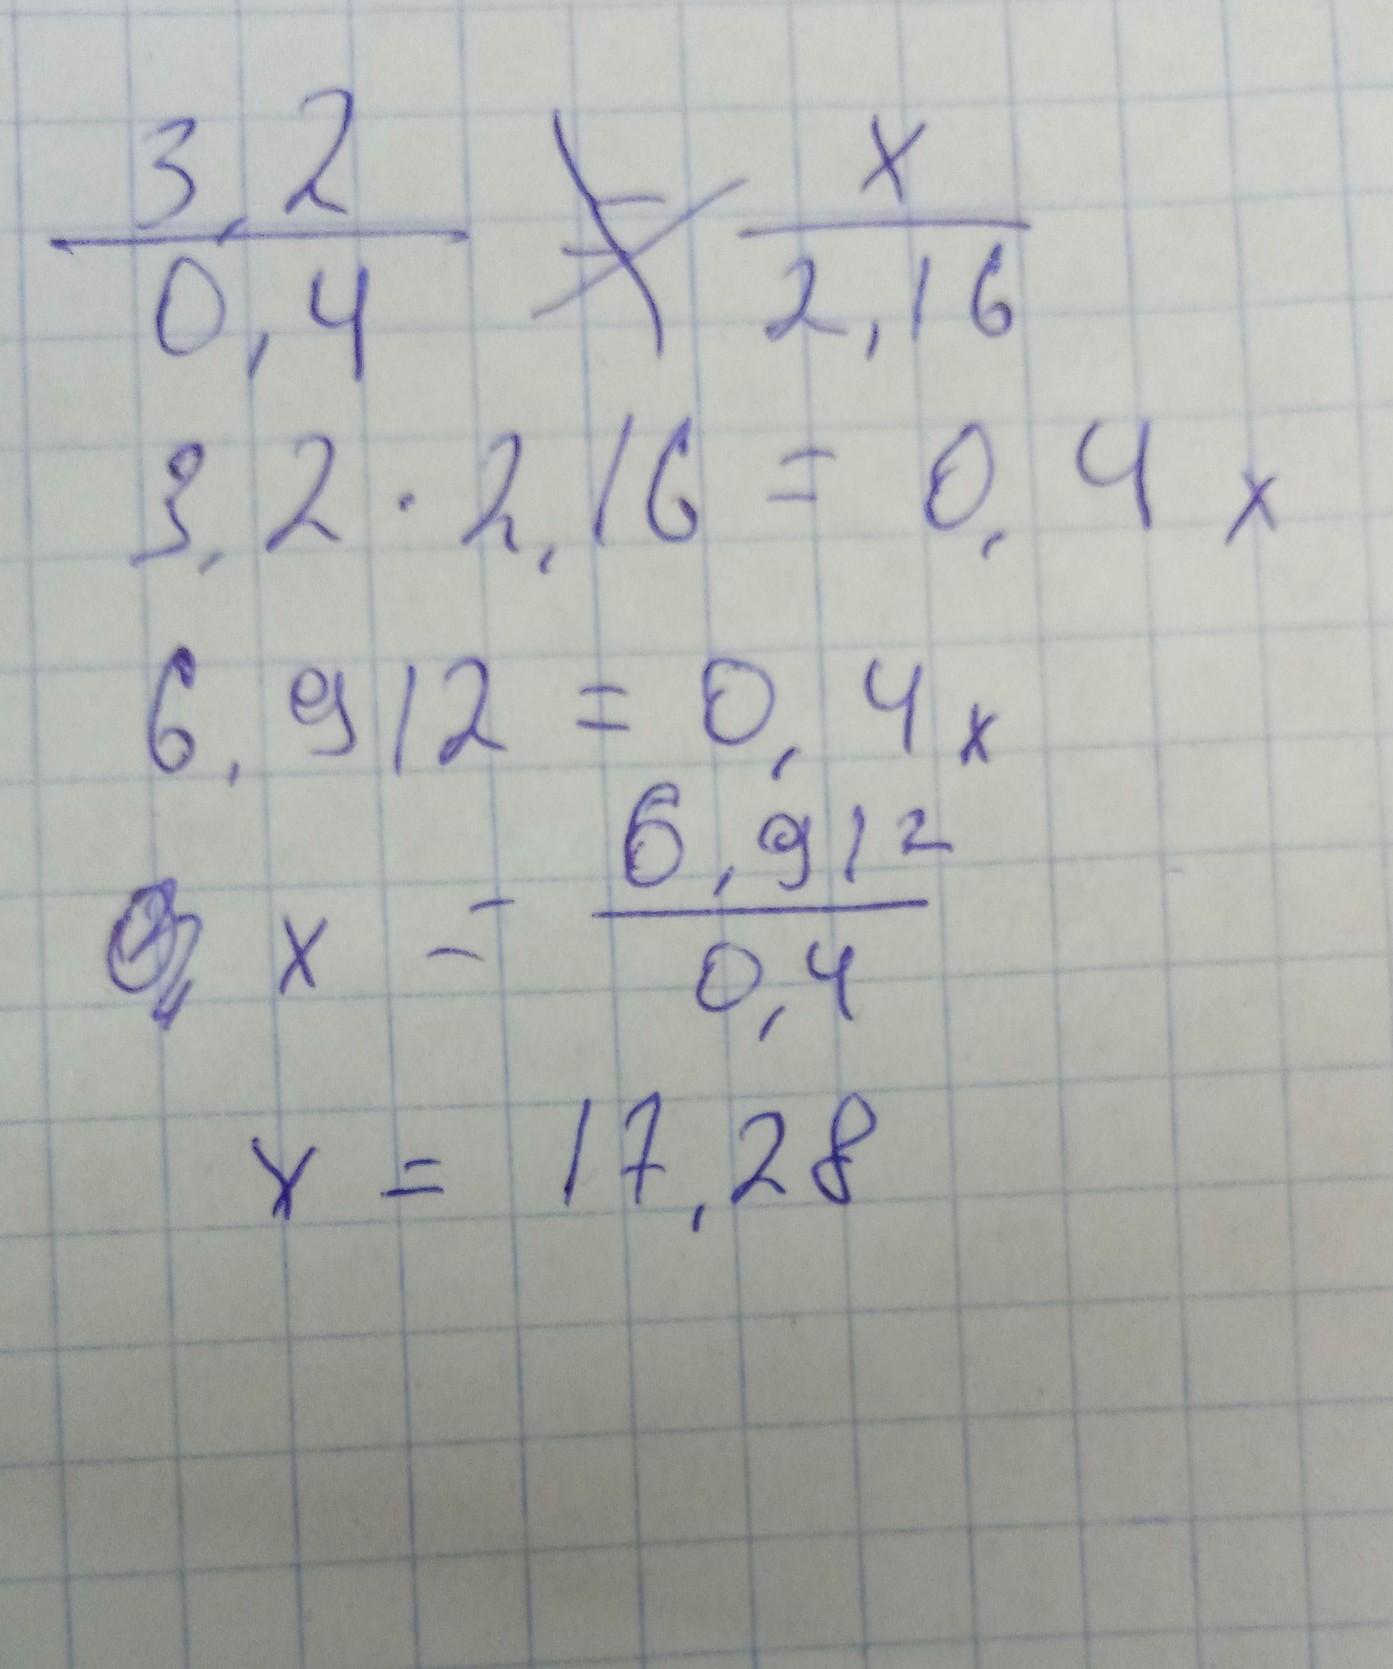 3,2 / 0,4 = x / 2,16
3,2 · 2,16 = 0,4 x
6,912 = 0,4 x
x = 6,912 / 0,4
x = 17,28